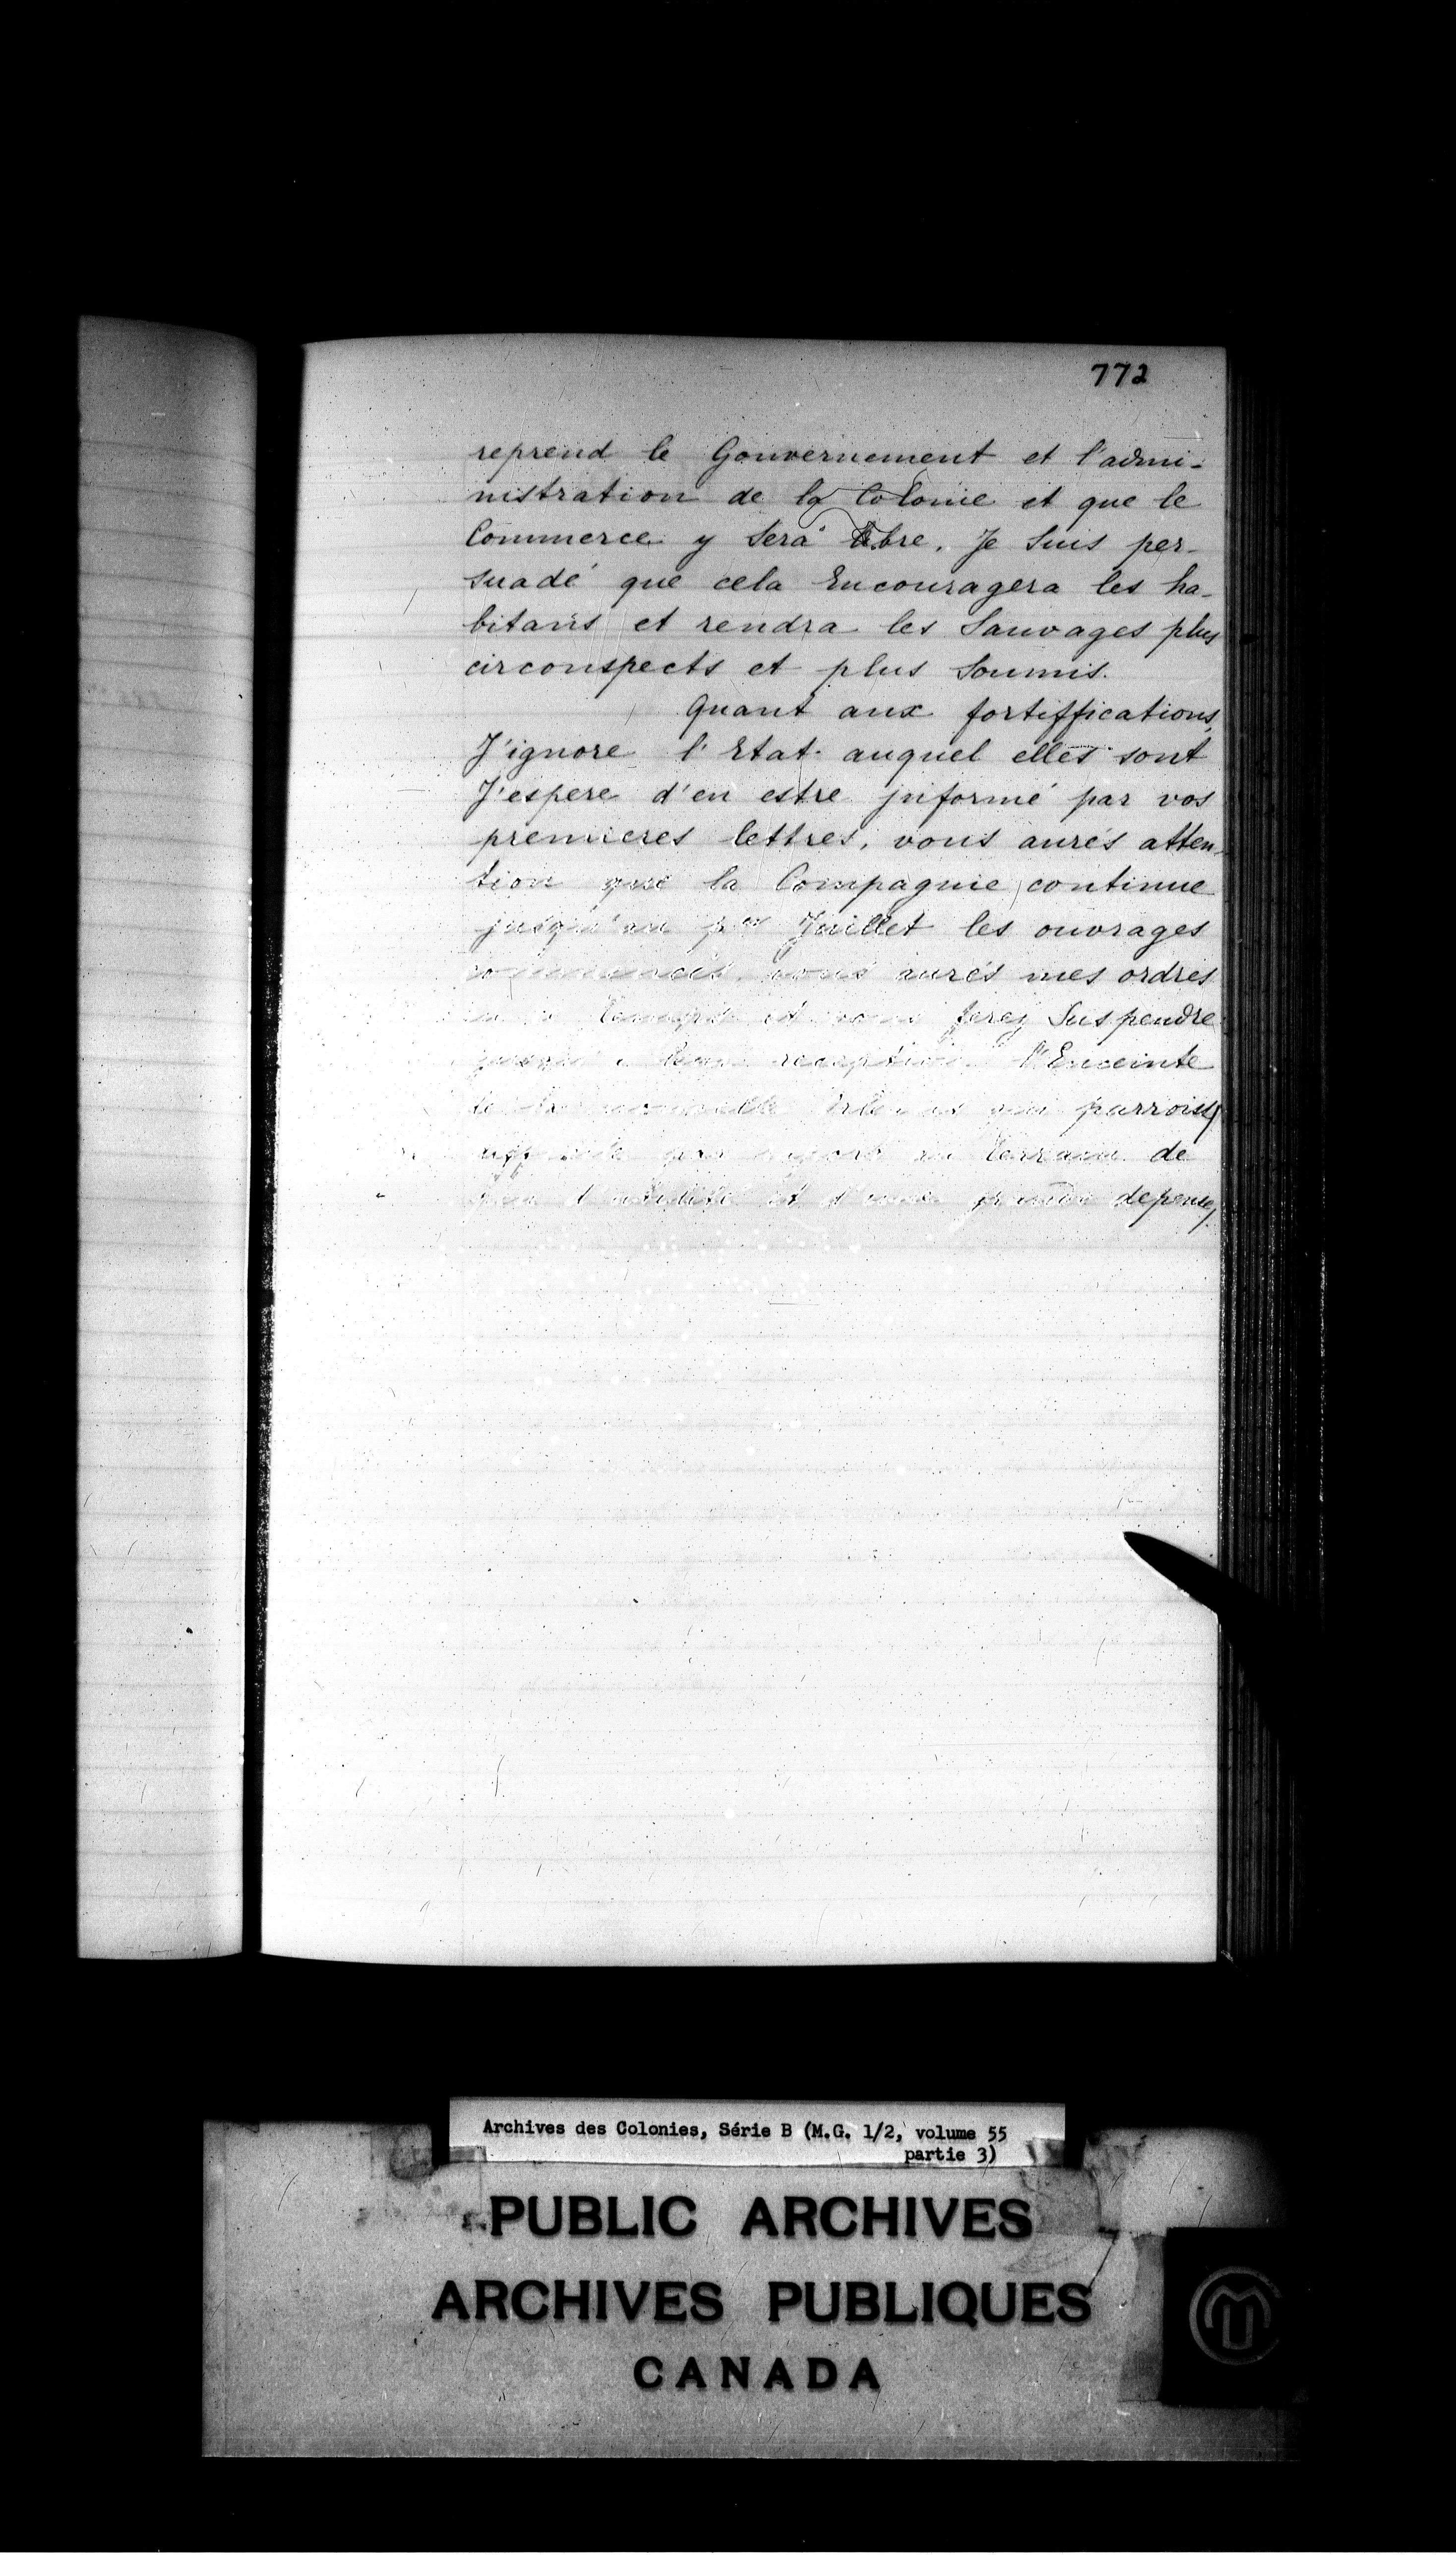 772
reprend le Gouvernement et l'admi-
nistration de la Colonie et que le
Commerce y Sera libre. Je Suis per-
suadé que cela Encouragera les ha-
bitans et rendra les Sauvages plus
circonspects et plus Soumis.
Quant aux fortiffications,
J'ignore l'Etat auquel elles sont
J'espere d'en estre jnformé par vos
premieres lettres, vous aurés atten-
tion que la Compagnie continue
jusqu'au p.er Juillet les ouvrages
commencés. vous aurés mes ordres
et vous ferez Suspendre
reception l'Enceinte
de la nouvelle Orleans qui parroist
par raport au terrain de
peu d'utilité et d'une grande depense,
Archives des Colonies, Série B (M.G. 1/2, volume 55
partie 3)
PUBLIC ARCHIVES
ARCHIVES PUBLIQUES
CANADA